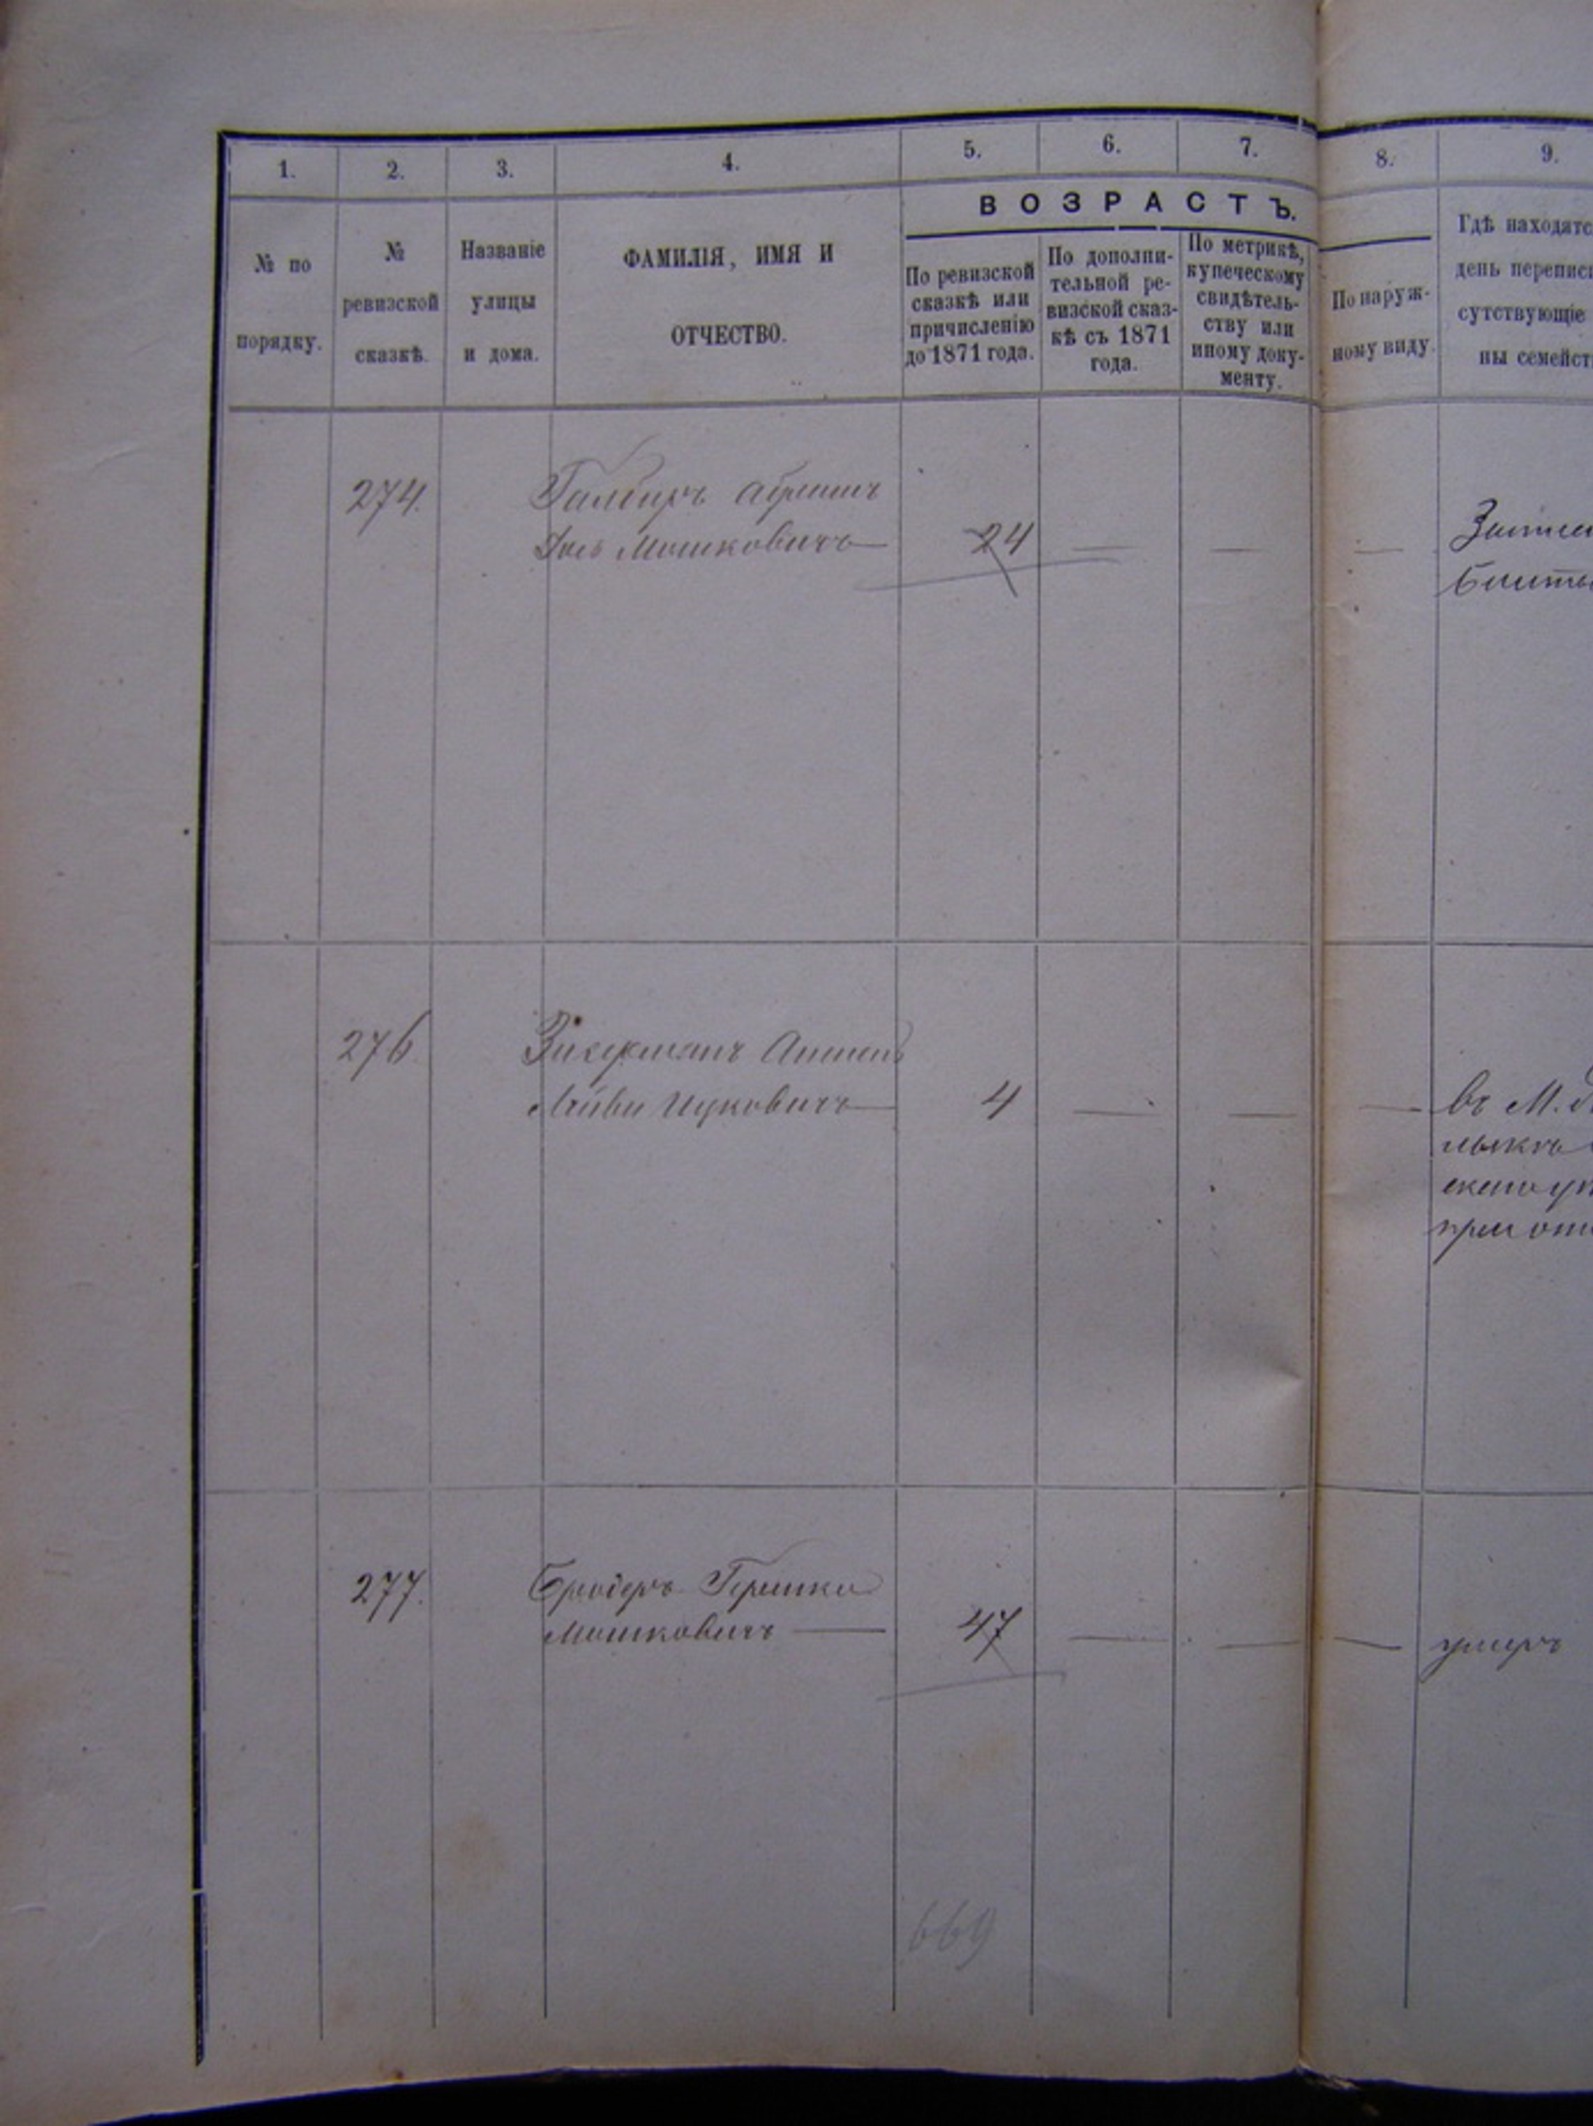 1. 2. 3. 4. 5. 6. 7. 8. 9.
ВОЗРАСТЪ.
№ по
порядку.
№
ревизской
сказкѣ.
Названіе
улицы
и дома.
ФАМИЛІЯ, ИМЯ И
ОТЧЕСТВО.
По ревизской
сказкѣ или
причисленію
до 1871 года.
По дополни-
тельной ре-
визской сказ-
кѣ съ 1871
года.
По метрикѣ,
купеческому
свидѣтель-
ству или
иному доку-
менту.
По наруж-
ному виду.
Гдѣ находятс
день переписи
сутствующіе
ны семейст
274. Абрамъ
Мошковичъ — 24 — — —
276.
Лейви Ицковичъ — 4 — — — въ М.
при
277. Бродеръ Гершко
Мошковичъ — 47 — — — умеръ
669